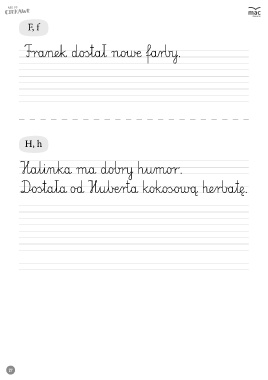 CIEKAWE
mac
F, f
Franek dostał nowe farby.
H, h
Halinka ma dobry humor.
Dostała od Huberta kokosową herbatę.